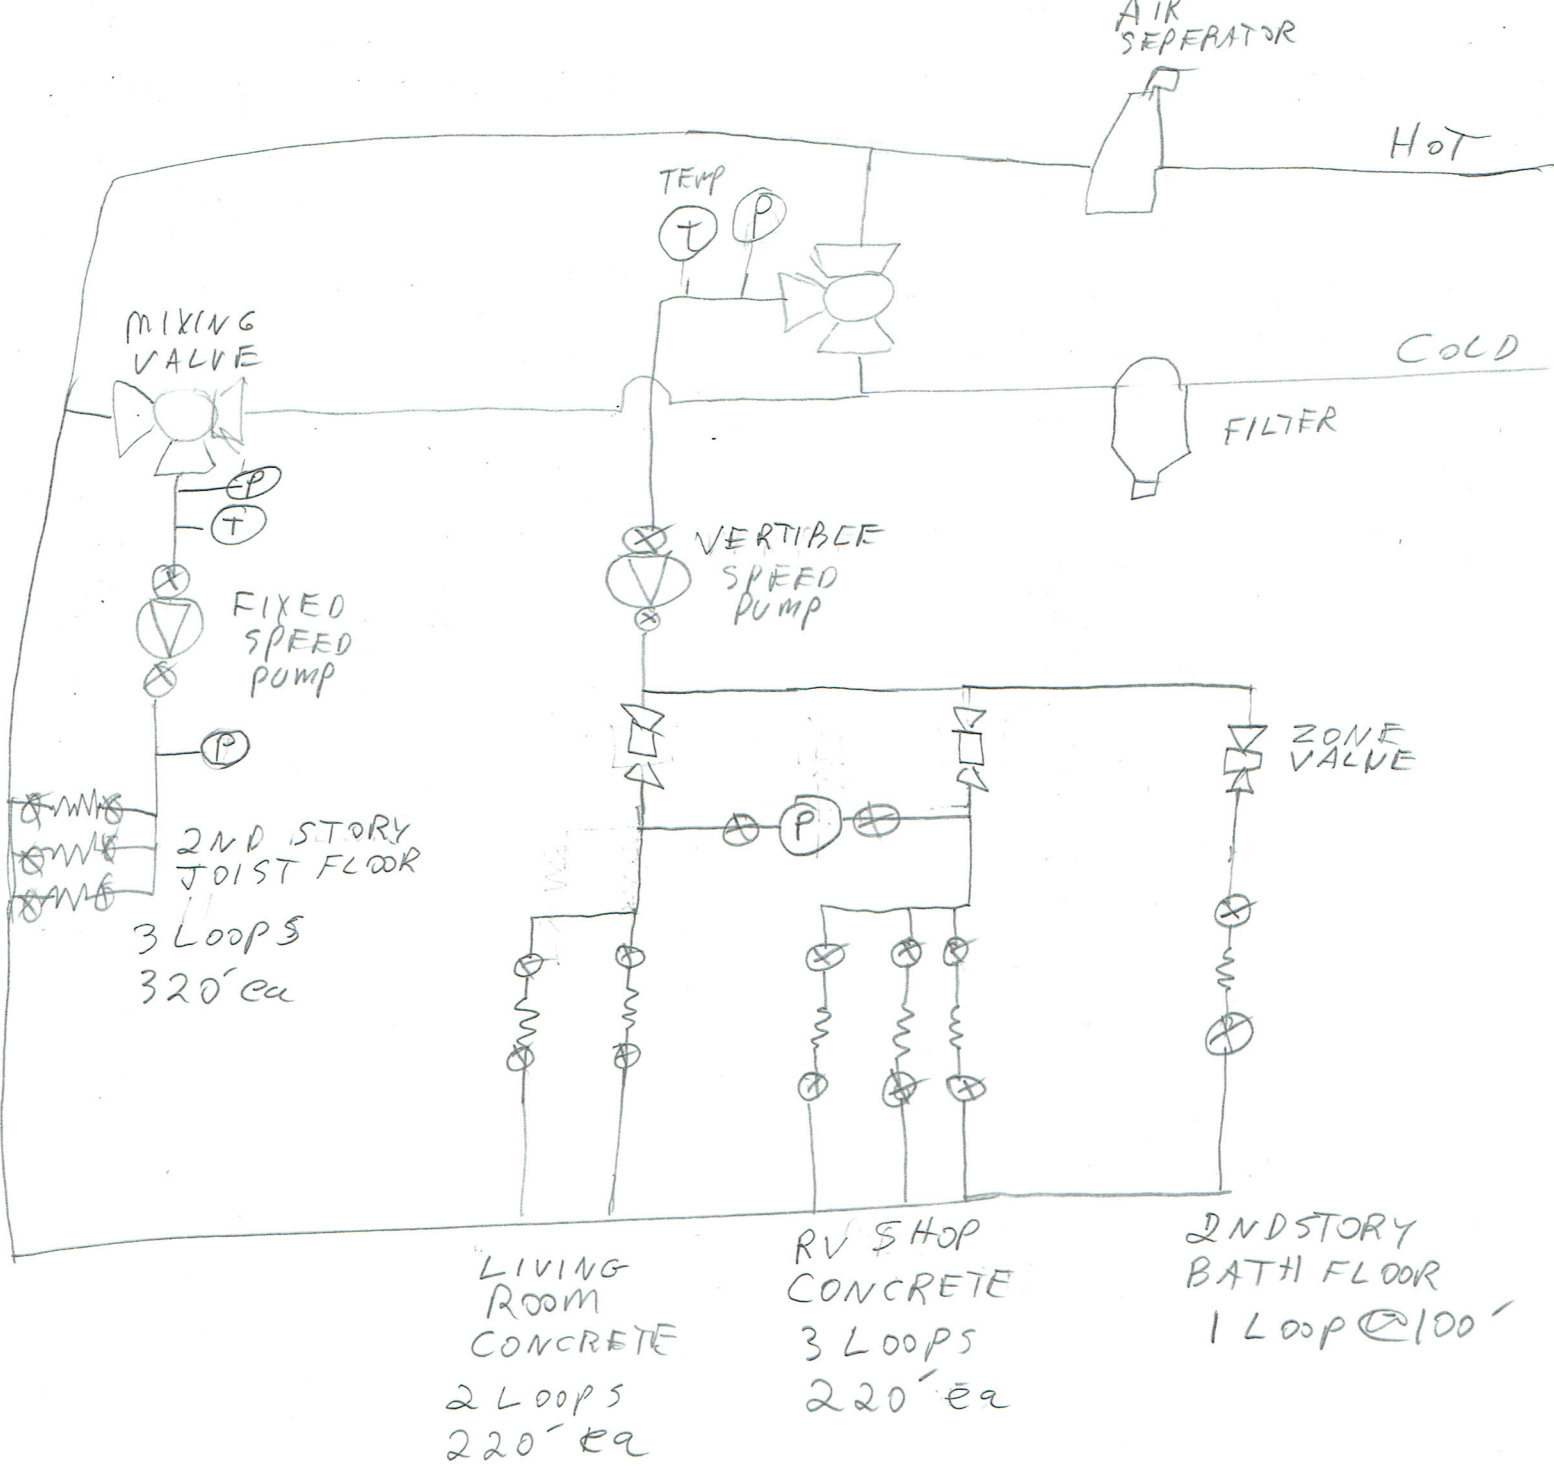 AIR
SEPERATOR
HOT
TEMP
T
P
MIXING
VALVE
COLD
FILTER
P
T
VERTIBLE
SPEED
PUMP
FIXED
SPEED
PUMP
P
ZONE
VALVE
P
2ND STORY
JOIST FLOOR
3 LOOPS
320' ea
LIVING
ROOM
CONCRETE
2 LOOPS
220' ea
RV SHOP
CONCRETE
3 LOOPS
220' ea
2ND STORY
BATH FLOOR
1 LOOP @ 100'